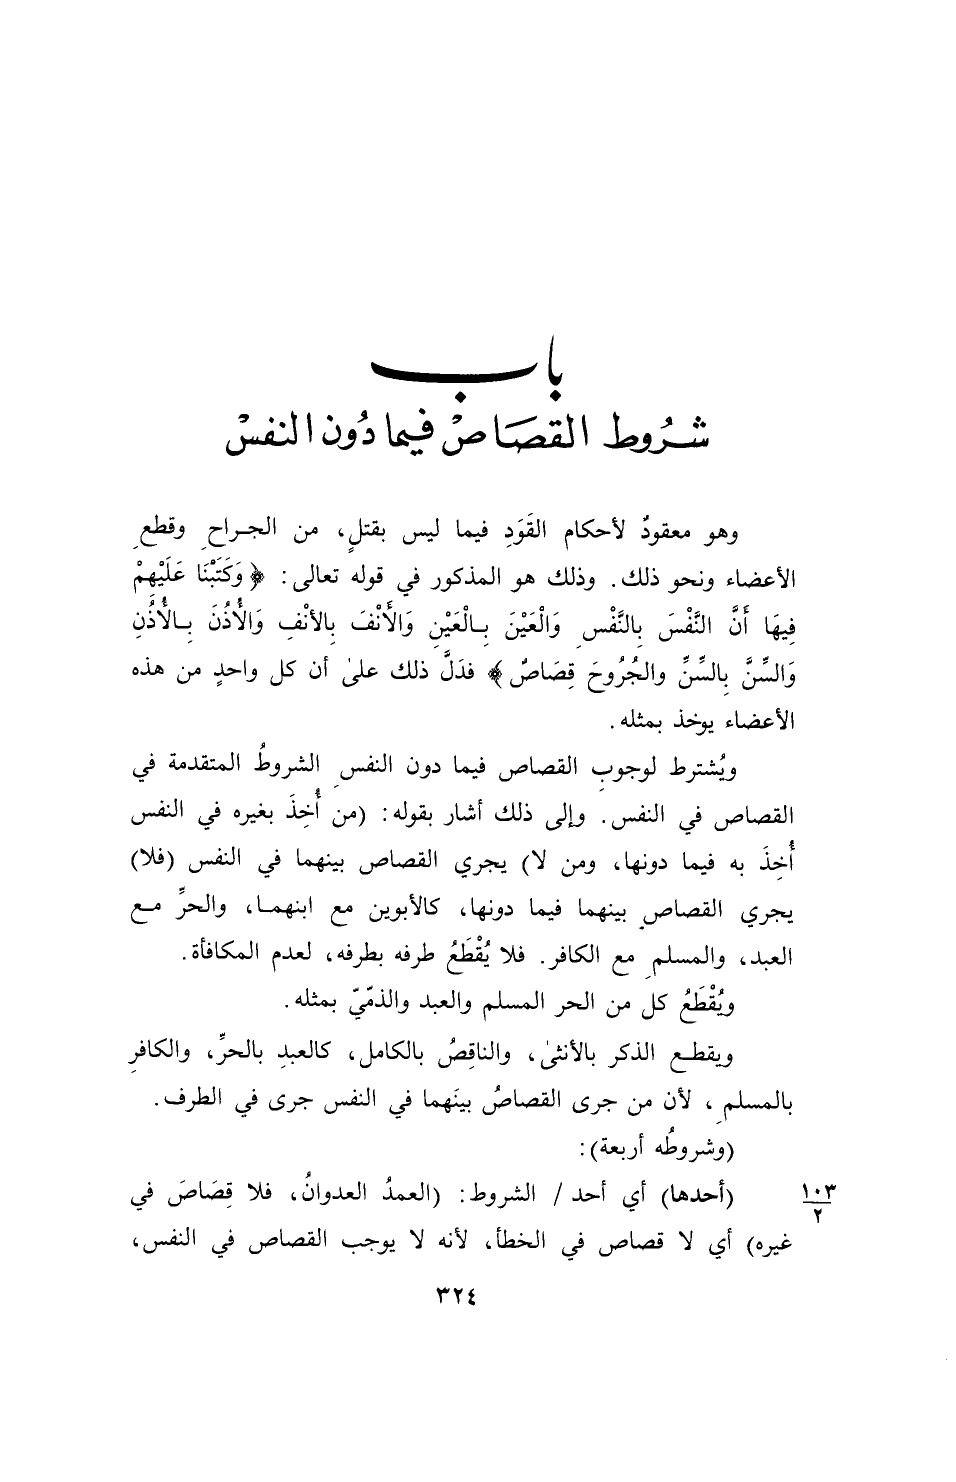 باب
شروط القصاص فيما دُون النفس
وهو معقودٌ لأحكام القَوَدِ فيما ليس بقتلٍ، من الجراحِ وقطعِ
الأعضاء ونحو ذلك. وذلك هو المذكور في قوله تعالى: ﴿وَكَتَبْنَا عَلَيْهِمْ
فِيهَا أَنَّ النَّفْسَ بِالنَّفْسِ وَالْعَيْنَ بِالْعَيْنِ وَالأَنْفَ بِالأنْفِ وَالْأُذُنَ بِالْأُذُنِ
وَالسِّنَّ بِالسِّنِّ والجُرُوحَ قِصَاصٌ﴾ فدَلَّ ذلك على أن كل واحدٍ من هذه
الأعضاء يوخذ بمثله.
ويُشترط لوجوبِ القصاص فيما دون النفسِ الشروطُ المتقدمة في
القصاص في النفس. وإلى ذلك أشار بقوله: (من أُخِذَ بغيره في النفس
أُخِذَ به فيما دونها، ومن لا) يجري القصاص بينهما في النفس (فلا)
يجري القصاص بينهما فيما دونها، كالأبوين مع ابنهما، والحرِّ مع
العبد، والمسلمِ مع الكافر. فلا يُقْطَعُ طرفه بطرفه، لعدم المكافأة.
ويُقْطَعُ كل من الحر المسلم والعبد والذمّيّ بمثله.
ويقطع الذكر بالأنثى، والناقِصُ بالكامل، كالعبدِ بالحرِّ، والكافرِ
بالمسلمِ، لأن من جرى القصاصُ بينَهما في النفس جرى في الطرف.
(وشروطُه أربعة):
(أحدها) أي أحد / الشروط: (العمدُ العدوانُ، فلا قِصَاصَ في
١٠٣
٢
غيره) أي لا قصاص في الخطأ، لأنه لا يوجب القصاص في النفس،
٣٢٤